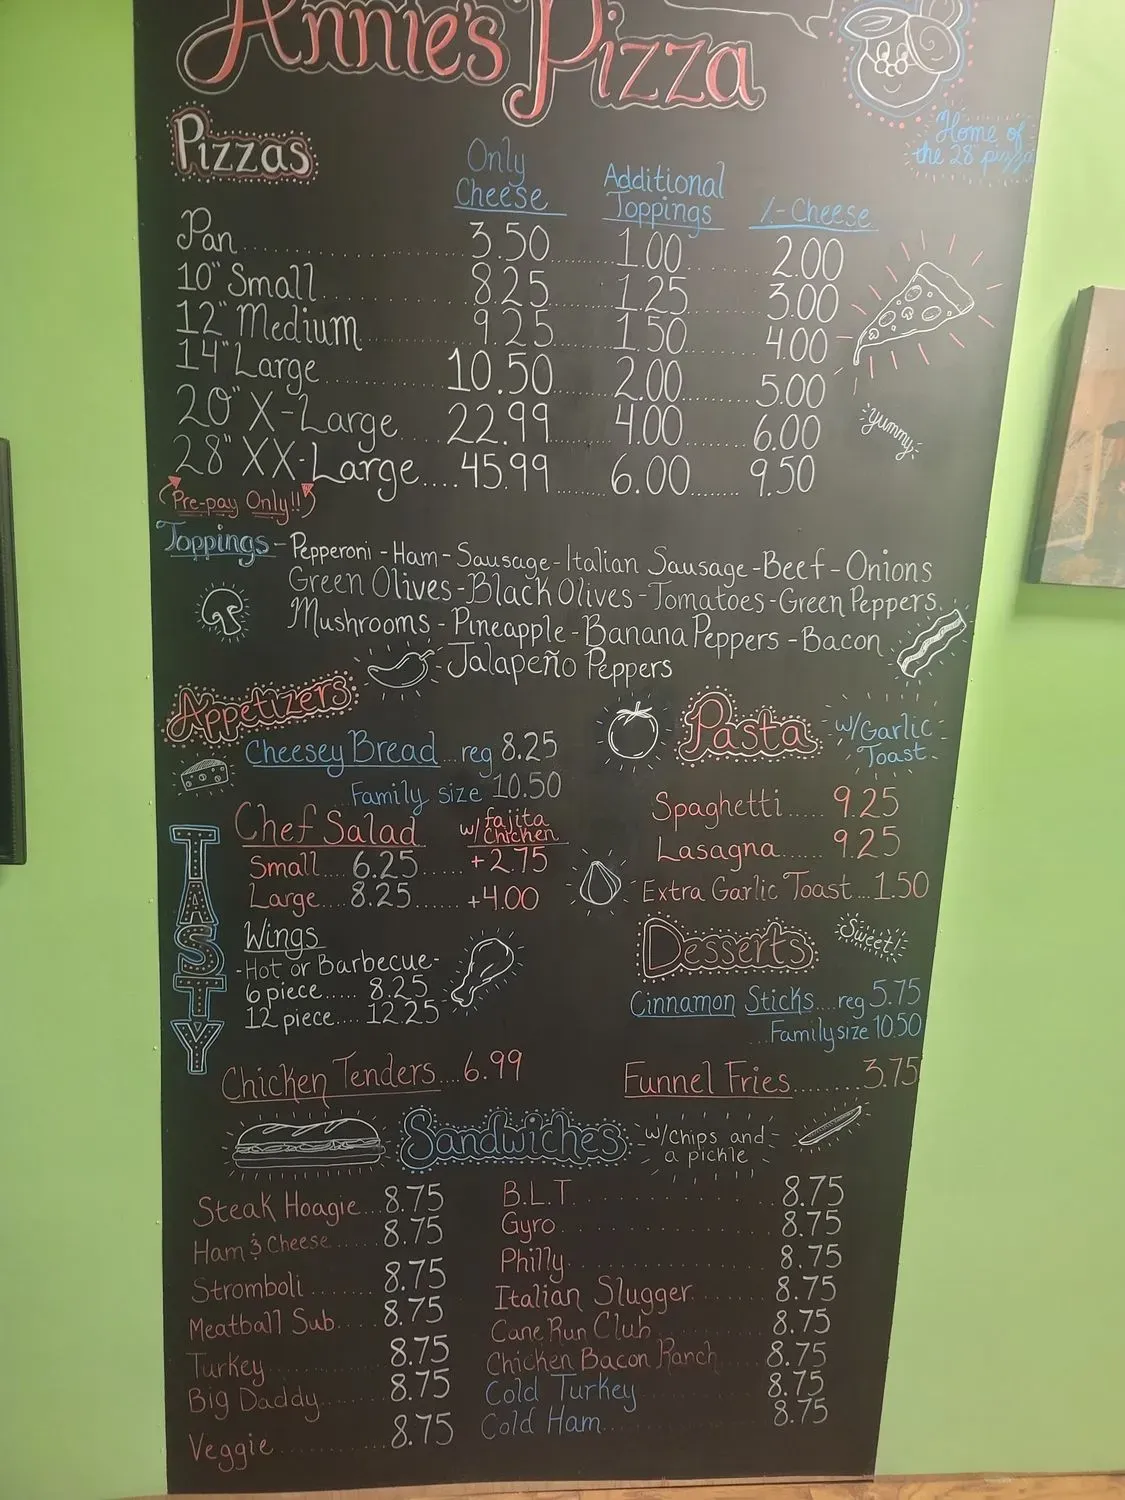 Annie's Pizza
Home of
the 28" pizza
Pizzas
Only
Cheese
Additional
Toppings
X-Cheese
Pan 3.50 1.00 2.00
10" Small 8.25 1.25 3.00
12" Medium 9.25 1.50 4.00
14" Large 10.50 2.00 5.00
20" X-Large 22.99 4.00 6.00
28" XX-Large.... 45.99 6.00 9.50
Pre-pay Only!!
yummy
Toppings - Pepperoni - Ham - Sausage - Italian Sausage - Beef - Onions
Green Olives - Black Olives - Tomatoes - Green Peppers
Mushrooms - Pineapple - Banana Peppers - Bacon
Jalapeño Peppers
Appetizers
Cheesey Bread...reg 8.25
Family size 10.50
Chef Salad w/ fajita
chicken
Small 6.25 +2.75
Large 8.25 +4.00
Wings
-Hot or Barbecue-
6 piece..... 8.25
12 piece.... 12.25
Chicken Tenders...6.99
TASTY
Pasta
w/Garlic
Toast
Spaghetti..... 9.25
Lasagna...... 9.25
Extra Garlic Toast...1.50
Desserts
Sweet!
Cinnamon Sticks....reg 5.75
Family size 10.50
Funnel Fries........3.75
Sandwiches
w/chips and
a pickle
Steak Hoagie 8.75
Ham & Cheese 8.75
Stromboli 8.75
Meatball Sub 8.75
Turkey 8.75
Big Daddy 8.75
Veggie 8.75
B.L.T. 8.75
Gyro 8.75
Philly 8.75
Italian Slugger 8.75
Cane Run Club 8.75
Chicken Bacon Ranch 8.75
Cold Turkey 8.75
Cold Ham 8.75